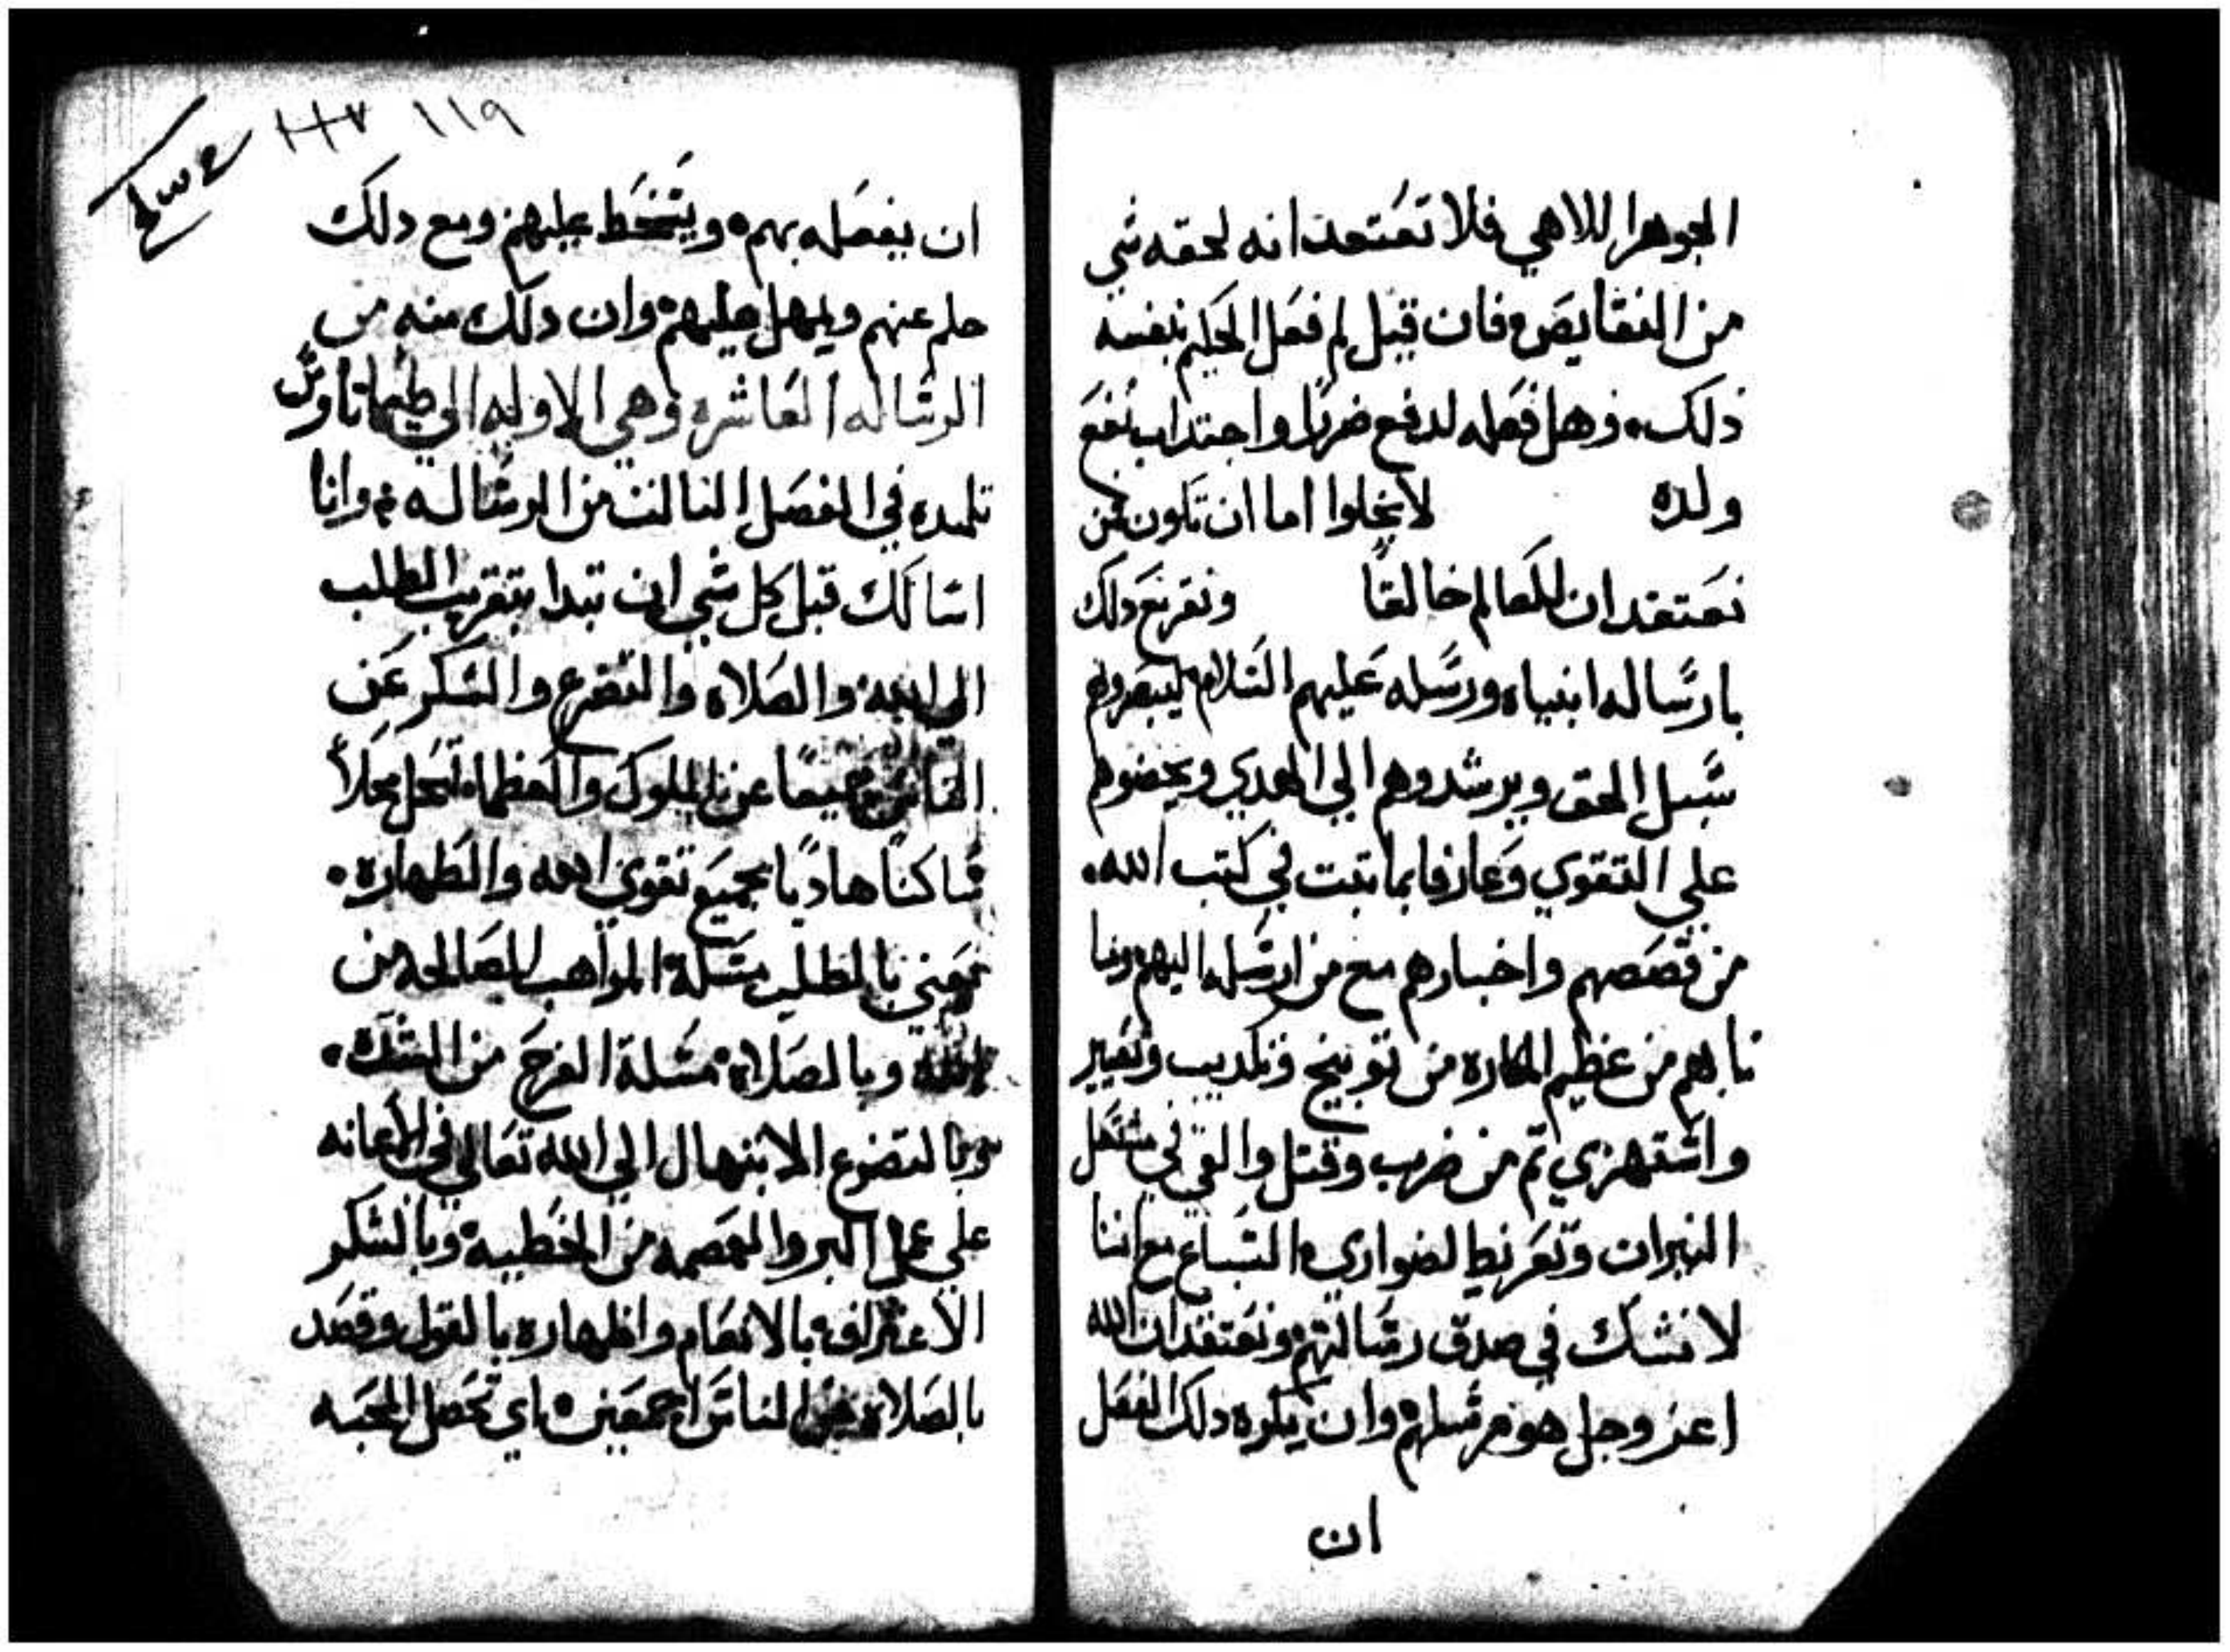 الجوهر اللاهي فلا تعتقد انه لحقه شي
من النقايص فان قيل لم فعل الحكيم بنفسه
ذلك وهل فعله لدفع ضررًا واجتداب نفع
ولده لا يخلوا اما ان تكون ممن
نعتقد ان للعالم خالقًا ونقر مع دلك
بارساله انبياه ورسله عليهم السلام ليبصروهم
سبل الحق ويرشدوهم الي الهدي ويحضوهم
علي التقوي وعارفا بما تبت في كتب الله
من قصصهم واخبارهم مع من ارسله اليهم وما
نابهم من عظيم المكاره من توبيخ وتكديب وتعيير
واستهزي تم من ضرب وقتل والقي في مشتعل
النيران وتعريط لضواري السباع مع اننا
لا نشك في صدق رسالتهم ونعتقد ان الله
عز وجل هو مرسلهم وان يكره دلك الفعل
ان
١١٩
ان يفعله بهم ويتسخط عليهم ومع دلك
حلم عنهم ويمهل عليهم وان دلك منه من
الرساله العاشره وهي الاوليه الي طيماتاوس
تلميده في الفصل التالت من الرساله وانا
اسالك قبل كل شي ان تبدا بتقريب الطلب
الي الله والصلاه والتضرع والشكر عن
الناس جميعًا عن الملوك والعظماء لنحل محلاً
ساكنًا هاديًا بجميع تقوي الله والطهاره
يعني بالطلب مسلة المواهب الصالحه من
الله وبالصلاه مسلة الفرج من الشدة
وبالتضرع الابتهال الي الله تعالي في الاعانه
علي عمل البر والعصمه من الخطيه وبالشكر
الاعتراف بالانعام واظهاره بالقول وقصد
بالصلاه عن الناس اجمعين اي تحصل المحبه